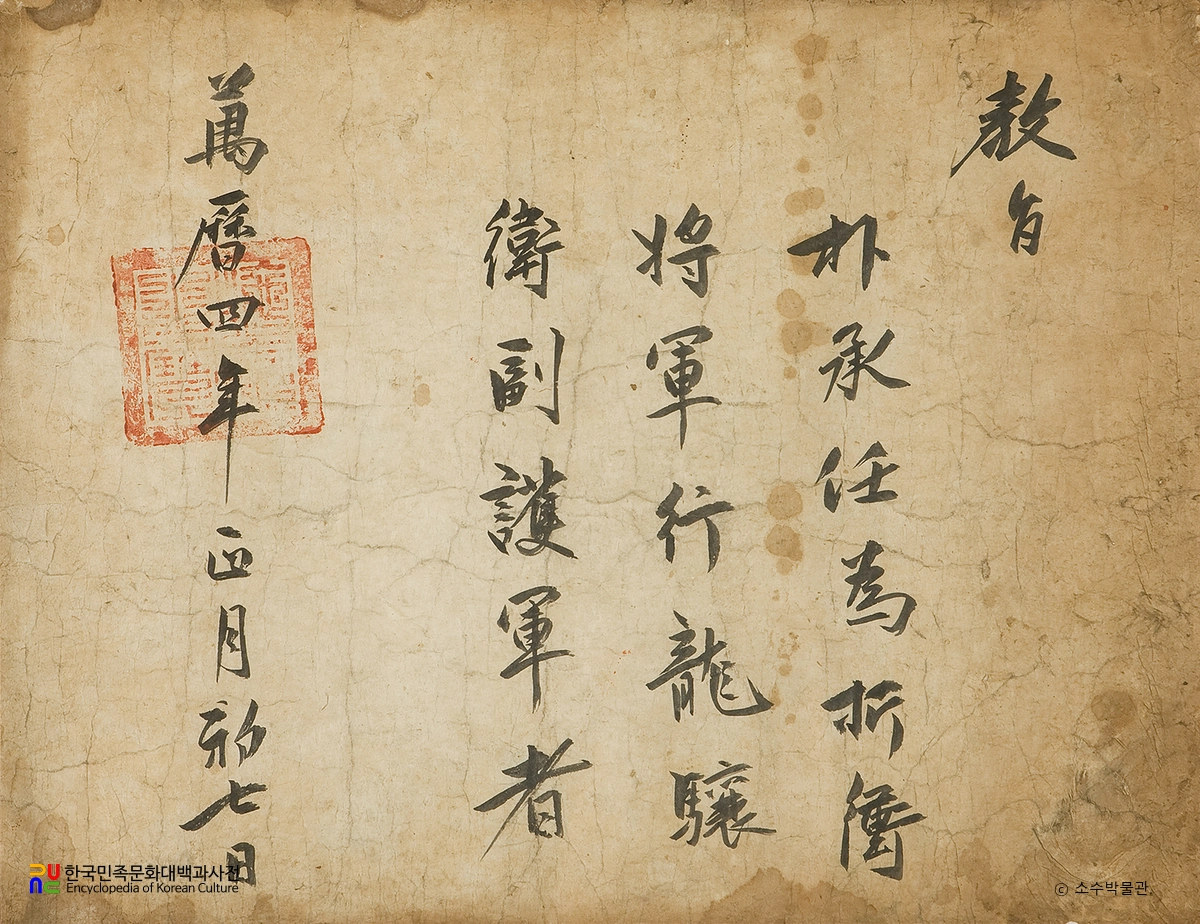 敎旨
朴承任為折衝
將軍行龍驤
衛副護軍者
萬曆四年正月初七日
한국민족문화대백과사전
Encyclopedia of Korean Culture
ⓒ 소수박물관